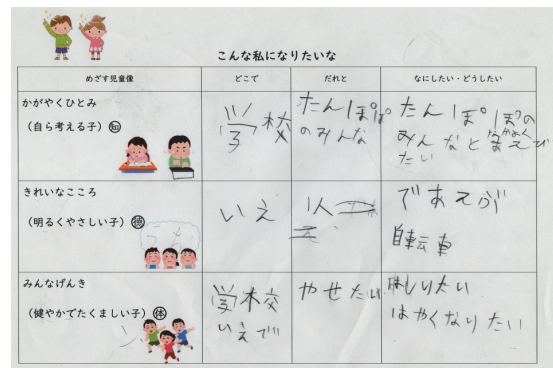 こんな私になりたいな
めざす児童像
どこで
だれと
なにしたい・どうしたい
かがやくひとみ
(自ら考える子) ㊙知
学校
たんぽぽ
のみんな
たんぽぽの
みんなと
たい
きれいなこころ
(明るくやさしい子) 徳
いえ
1人
であそぶ
自転車
みんなげんき
(健やかでたくましい子) 体
学校
いえで
やせたい
はしりたい
はやくなりたい